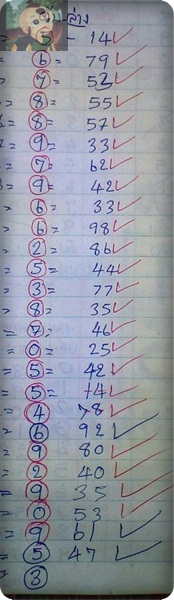 ล่าง
5 - 14 ✓
6 = 79 ✓
7 = 52 ✓
= 8 = 55 ✓
= 8 = 57 ✓
= 9 = 33 ✓
= 7 = 62 ✓
= 9 = 42 ✓
= 6 = 33 ✓
= 6 = 98 ✓
= 2 = 86 ✓
= 5 = 44 ✓
= 3 = 77 ✓
= 8 = 35 ✓
= 7 = 46 ✓
= 0 = 25 ✓
= 5 = 42 ✓
= 5 = 14 ✓
= 4 78 ✓
= 6 92 ✓
= 9 80 ✓
= 2 40 ✓
= 9 35 ✓
= 0 53 ✓
= 9 61 ✓
= 5 47 ✓
3